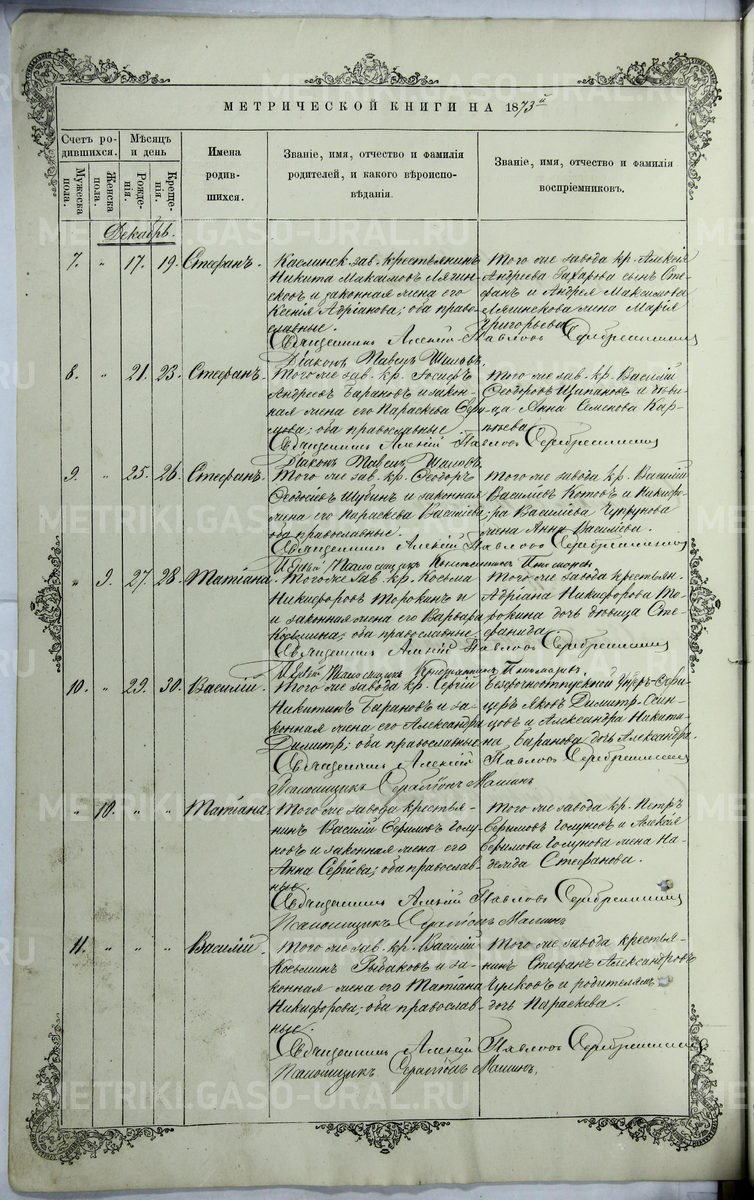 МЕТРИЧЕСКОЙ КНИГИ НА 1873й
Счетъ родившихся.
Мужеска пола.
Женска пола.
Мѣсяцъ и день
Рожденія.
Крещенія.
Имена родившихся.
Званіе, имя, отчество и фамилія родителей, и какого вѣроисповѣданія.
Званіе, имя, отчество и фамилія воспріемниковъ.
Декабрь.
7. „ 17. 19. Стефанъ.
Каслинск. зав. крестьянинъ
Никита Максимовъ
и законная жена его
Ксенія Адріанова; оба православные.
Того же завода кр. Алексія
Андреева Захарова сынъ Стефанъ и Андрея Максимова
жена Марія
Григорьева
Священникъ Алексій Павловъ Серебренниковъ
Діаконъ Павелъ
8. „ 21. 23. Стефанъ.
Того же зав. кр. Іосифъ
Андреевъ Барановъ и законная жена его Параскева
оба православные
Того же зав. кр. Василій
Ѳеодоровъ и дѣвица Анна Семенова
Священникъ Алексій Павловъ Серебренниковъ
Діаконъ Павелъ
9. „ 25. 26. Стефанъ.
Того же зав. кр. Ѳеодоръ
Шубинъ и законная
жена его Параскева Васильева;
оба православные.
Того же завода кр. Василій
Васильевъ Котовъ и
Васильева Чупрунова
жена Анна Васильева.
Священникъ Алексій Павловъ Серебренниковъ
Псаломщикъ Константинъ
„ 9. 27. 28. Татіана.
Того же зав. кр. Косьма
Никифоровъ Торокинъ и
законная жена его Варвара
Косьмина; оба православные
Того же завода крестьян.
Адріана Никифорова Торокина дочь дѣвица Стефанида
Священникъ Алексій Павловъ Серебренниковъ
Псаломщикъ Константинъ
10. „ 29. 30. Василій.
Того же завода кр. Сергій
Никитинъ Барановъ и законная жена его Александра
Димитр.; оба православные
Безсрочноотпускной Унтеръ-Офицеръ Яковъ Димитр.
и Александра Никитина Баранова дочь Александра.
Священникъ Алексій Павловъ Серебренниковъ
Псаломщикъ Серапіонъ Машинъ
„ 10. „ „ Татіана.
Того же завода крестьянинъ Василій Ефимовъ Голуновъ и законная жена его
Анна Сергіева; оба православные.
Того же завода кр. Петръ
Ефимовъ Голуновъ и Алексія
Ефимова Голунова жена Надежда Стефанова.
Священникъ Алексій Павловъ Серебренниковъ
Псаломщикъ Серапіонъ Машинъ
11. „ „ „ Василій.
Того же зав. кр. Василій
Косьминъ Рыбаковъ и законная жена его Татіана
Никифорова; оба православные.
Того же завода крестьянинъ Стефанъ Александровъ
и
дочь Параскева.
Священникъ Алексій Павловъ Серебренниковъ
Псаломщикъ Серапіонъ Машинъ.
METRIKI.GASO-URAL.RU